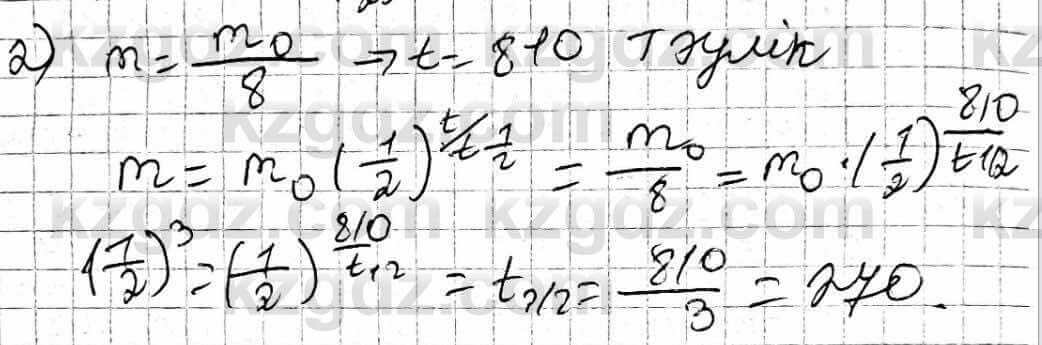 2) m = m₀/8 → t = 810 тәулік
m = m₀(1/2)^(t/t 1/2) = m₀/8 = m₀·(1/2)^(810/t1/2)
(1/2)³ = (1/2)^(810/t1/2) = t1/2 = 810/3 = 270.
kzgdz.com